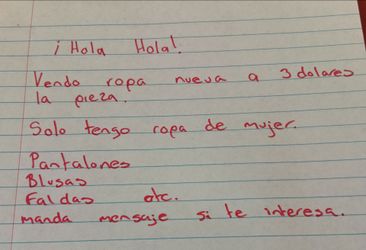 ¡Hola Hola!.
Vendo ropa nueva a 3 dolares
la pieza.
Solo tengo ropa de mujer.
Pantalones
Blusas
Faldas etc.
manda mensaje si te interesa.